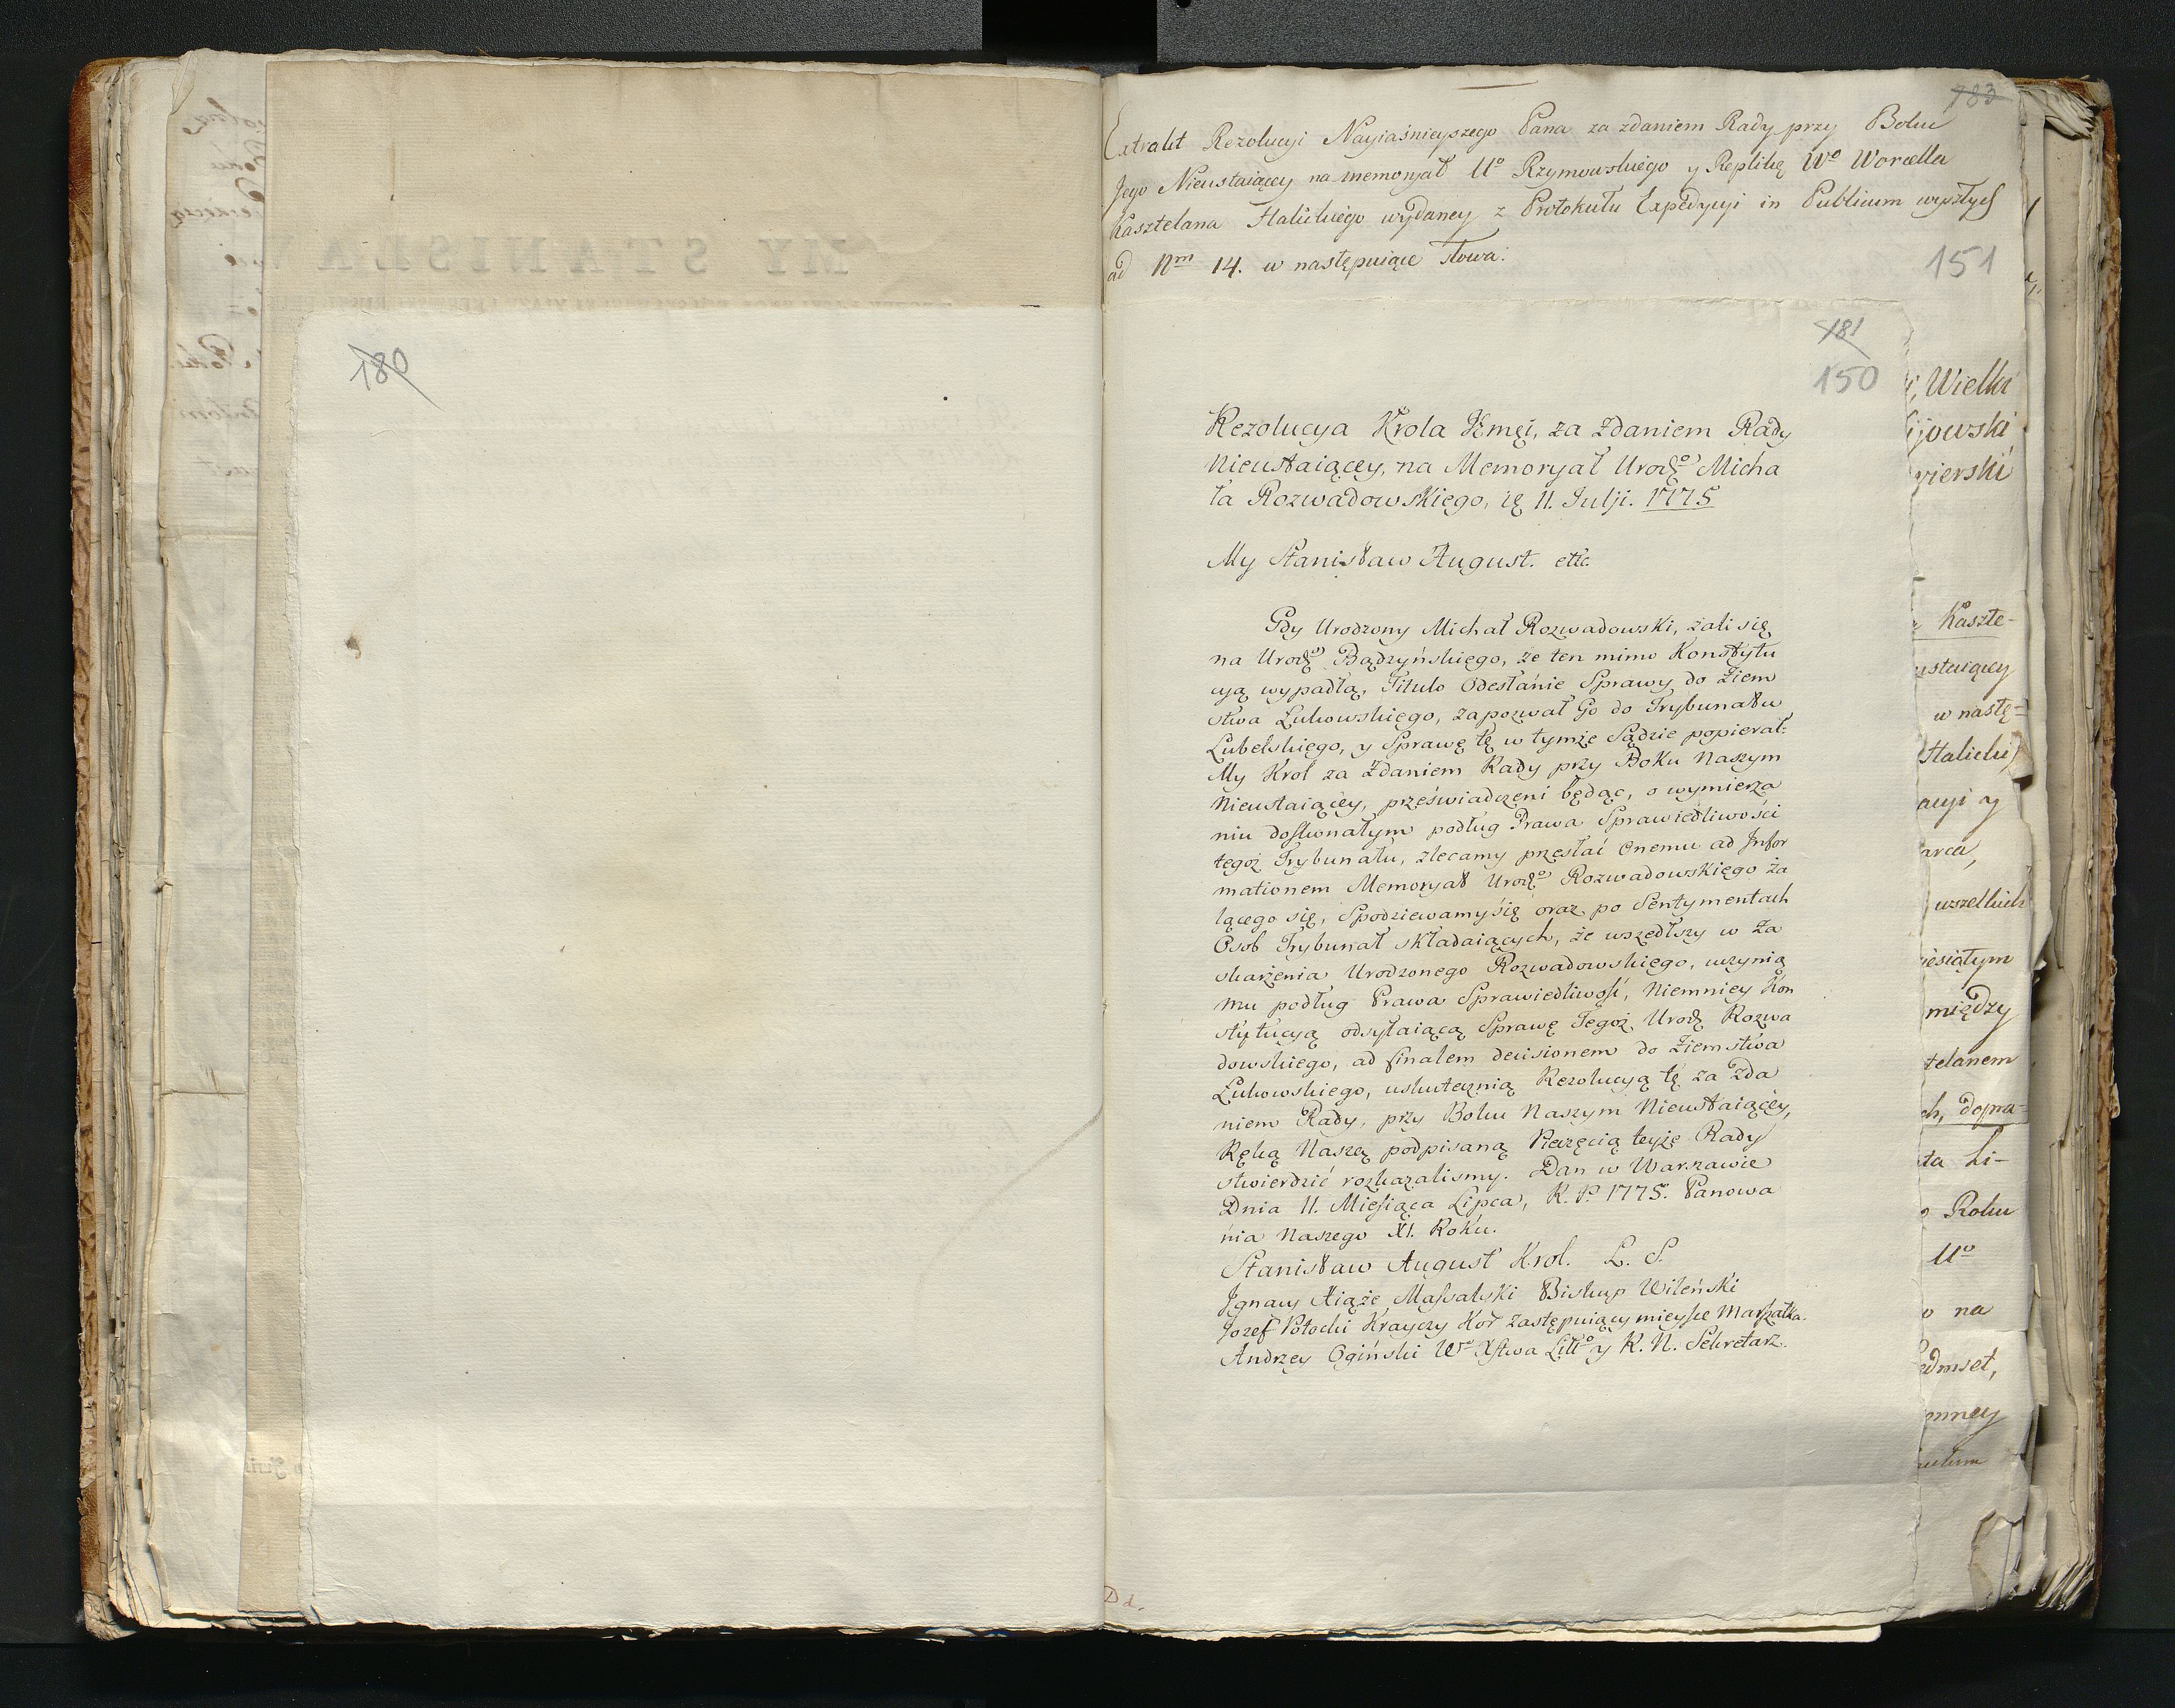 180
183
Extrakt Rezolucyi Nayiaśnieyszego Pana za zdaniem Rady przy Boku
Jego Nieustaiącey na memoryał Uº Rzymowskiego y Replikę Wº Worcella
Kasztelana Halickiego wydaney z Protokułu Expedycyi in Publicum wyszłych
ad Nm 14. w następuiące słowa:
151
181
150
Rezolucya Krola Jmęi, za Zdaniem Rady
Nieustaiącey, na Memoryał Urodzº Micha
ła Rozwadowskiego, 11. Julji. 1775
My Stanisław August. etc.
Gdy Urodzony Michał Rozwadowski, żali się
na Urodzº Bądzyńskiego, że ten mimo Konstytu
cyą wypadłą, Titulo Odesłanie Sprawy do Ziem
stwa Łukowskiego, zapozwał Go do Trybunału
Lubelskiego, y Sprawę tę w tymże Sądzie popierał:
My Krol za Zdaniem Rady przy Boku Naszym
Nieustaiącey, przeświadczeni będąc, o wymierza
niu doskonałym podług Prawa Sprawiedliwości
tegoż Trybunału, zlecamy przesłać Onemu ad Infor
mationem Memoryał Urodzº Rozwadowskiego ża
lącego się, Spodziewamy się oraz po Sentymentach
Osob Trybunał składaiących, że wszedłszy w Za
skarżenia Urodzonego Rozwadowskiego, uczynią
mu podług Prawa Sprawiedliwość, Niemniey Kon
stytucyą odsyłaiącą Sprawę Tegoż Urodz Rozwa
dowskiego, ad finalem decisionem do Ziemstwa
Łukowskiego, uskutecznią Rezolucyą tę za Zda
niem Rady, przy Boku Naszym Nieustaiącey,
Ręką Naszą podpisaną Pieczęcią teyże Rady
stwierdzić rozkazalismy. Dan w Warszawie
Dnia 11. Miesiąca Lipca, R. P. 1775. Panowa
nia Naszego XI. Roku.
Stanisław August Krol. L. S.
Jgnacy Xiąże Massalski Biskup Wileński
Jozef Potocki Krayczy Kor zastępuiący mieysce Marszałka.
Andrzey Ogiński Wº Xstwa Littº y R. N. Sekretarz.
Wielki
ijowski
Kaszte-
w nastę=
Halicki
wszelkich
między
telanem
ch, dopra=
ta Li-
Roku
Uº
na
Dd.